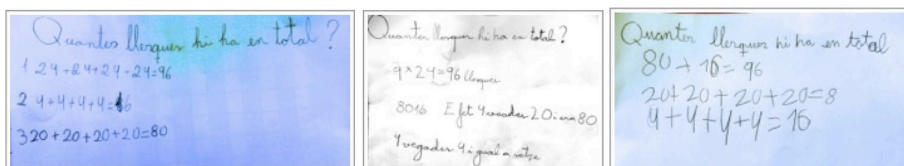 Quantes llesques hi ha en total?
1 24+24+24+24=96
2 4+4+4+4=16
3 20+20+20+20=80
Quantes llesques hi ha en total?
4×24=96 llesques
8016 E fet 4 vegades 20 i són 80
4 vegades 4 i igual a setze
Quantes llesques hi ha en total
80+16=96
20+20+20+20=8
4+4+4+4=16